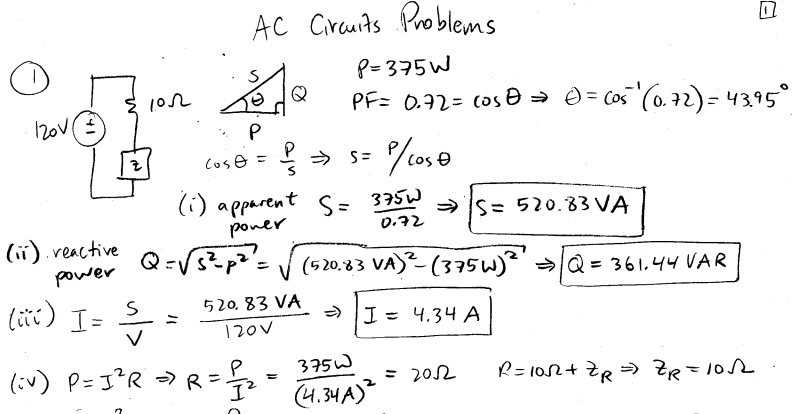 AC Circuits Problems
1
1
120V
10Ω
Z
S
θ
Q
P
P=375W
PF= 0.72= cosθ ⇒ θ= cos⁻¹(0.72)= 43.95°
cosθ = P/S ⇒ S= P/cosθ
(i) apparent power S= 375W/0.72 ⇒ S= 520.83 VA
(ii) reactive power Q=√S²-P² = √(520.83 VA)²-(375W)² ⇒ Q= 361.44 VAR
(iii) I= S/V = 520.83 VA/120V ⇒ I= 4.34 A
(iv) P=I²R ⇒ R= P/I² = 375W/(4.34A)² = 20Ω R=10Ω+ZR ⇒ ZR=10Ω